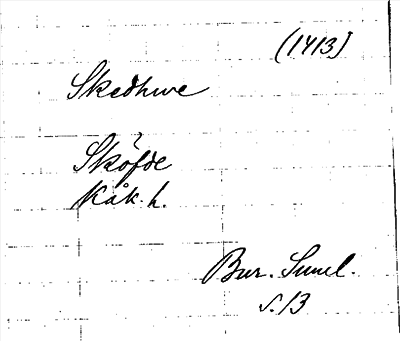 (1413)
Skedhwe
Sköfde
Kåk. h.
Bur. Suml.
s. 13